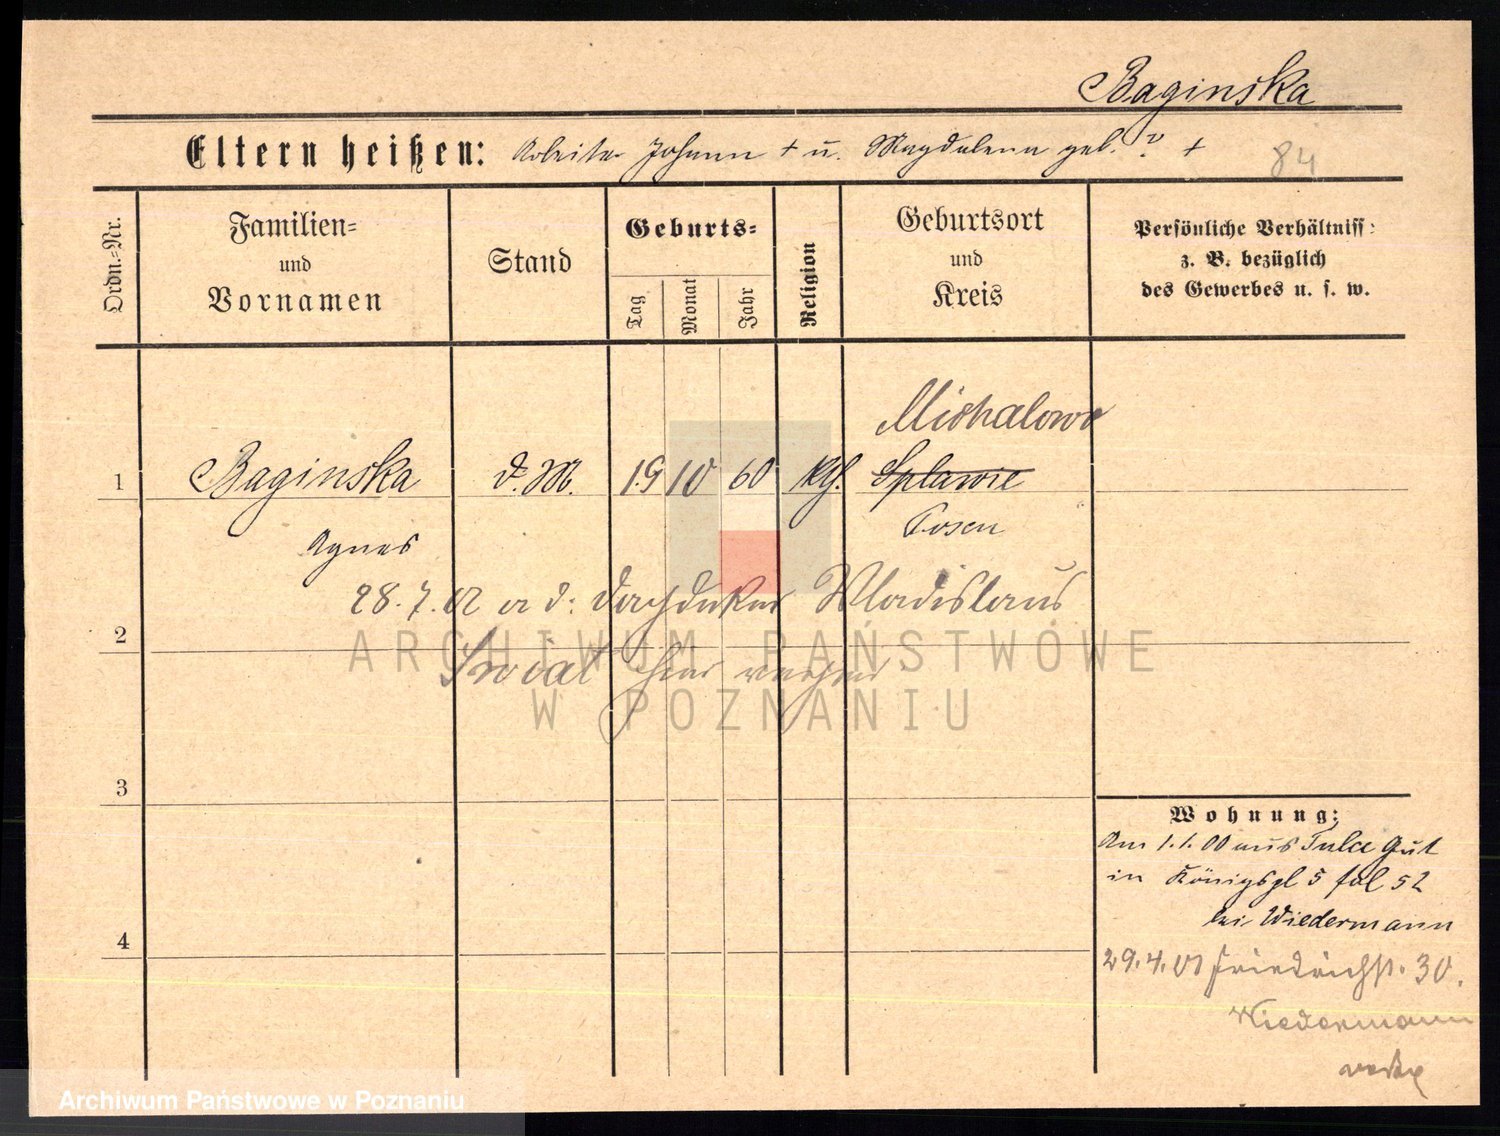 Baginska
Eltern heißen: Arbeiter Johann + u. Magdalena geb. ? +
84
Ordn.-Nr.
Familien-
und
Vornamen
Stand
Geburts-
Tag
Monat
Jahr
Religion
Geburtsort
und
Kreis
Persönliche Verhältniss:
z. B. bezüglich
des Gewerbes u. s. w.
Michalowo
1 Baginska d. M. 19 10 60 kth. Splawie
Posen
Agnes
28.7.02 a d: Dachdecker Wladislaus
2
Swiat hier
ARCHIWUM PAŃSTWOWE
W POZNANIU
3
4
Wohnung:
Am 1.1.00 aus Tulce Gut
in Königspl 5 52
bei Wiedermann
29.4.01 Friedrichst. 30.
Wiedermann
Archiwum Państwowe w Poznaniu